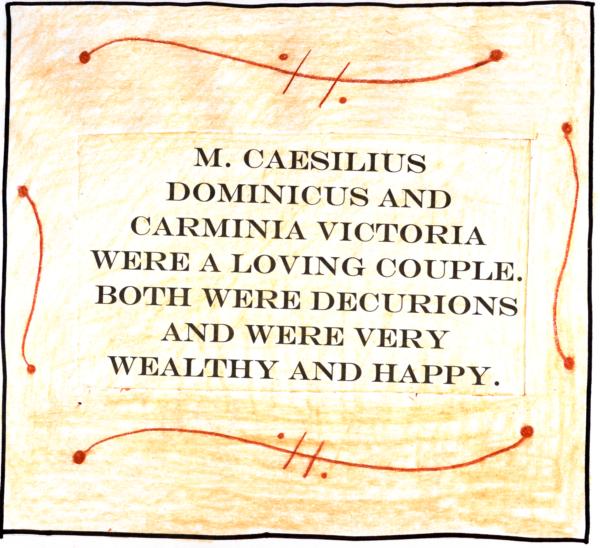 M. CAESILIUS
DOMINICUS AND
CARMINIA VICTORIA
WERE A LOVING COUPLE.
BOTH WERE DECURIONS
AND WERE VERY
WEALTHY AND HAPPY.